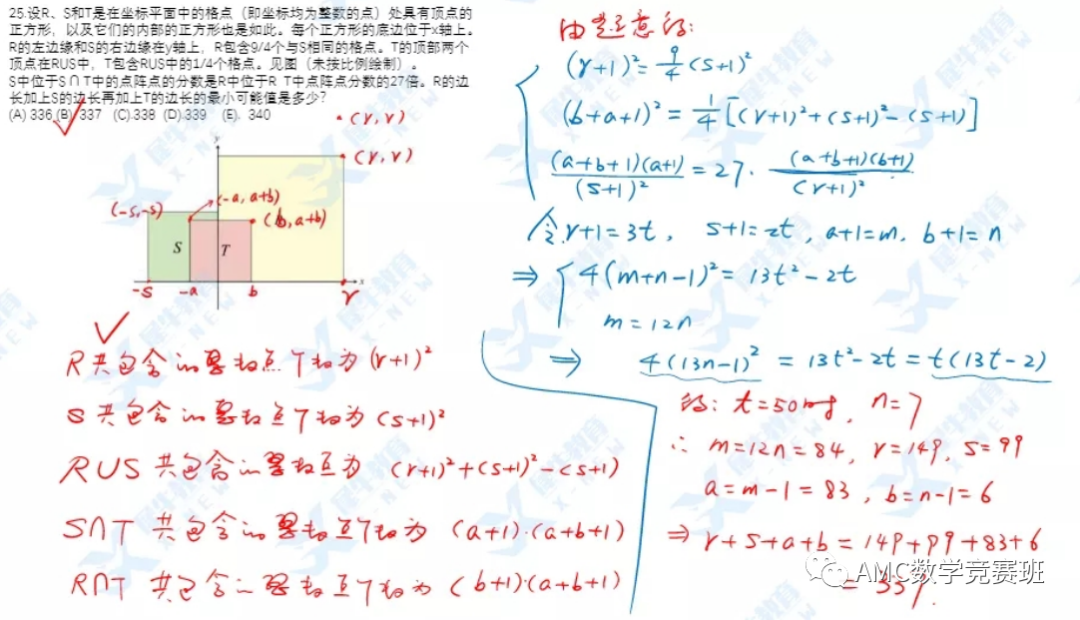 25.设R、S和T是在坐标平面中的格点（即坐标均为整数的点）处具有顶点的
正方形，以及它们的内部的正方形也是如此。每个正方形的底边位于x轴上。
R的左边缘和S的右边缘在y轴上，R包含9/4个与S相同的格点。T的顶部两个
顶点在RUS中，T包含RUS中的1/4个格点。见图（未按比例绘制）。
S中位于S∩T中的点阵点的分数是R中位于R T中点阵点分数的27倍。R的边
长加上S的边长再加上T的边长的最小可能值是多少?
(A) 336 (B) 337 (C).338 (D).339 (E). 340
(r, r)
y
(r, r)
(-a, a+b)
(-s,-s)
(b, a+b)
S
T
-s
-a
b
r
x
R 共包含的累加点个数为 (r+1)²
S 共包含的累加点个数为 (s+1)²
RUS 共包含的累加点为 (r+1)²+(s+1)²-(s+1)
S∩T 共包含的累加点个数为 (a+1)·(a+b+1)
R∩T 共包含的累加点个数为 (b+1)(a+b+1)
由题意得:
(r+1)²=9/4(s+1)²
(b+a+1)²=1/4[(r+1)²+(s+1)²-(s+1)]
(a+b+1)(a+1)/(s+1)²=27·(a+b+1)(b+1)/(r+1)²
令 r+1=3t, s+1=2t, a+1=m, b+1=n
⇒ 4(m+n-1)²=13t²-2t
m=12n
⇒ 4(13n-1)²=13t²-2t=t(13t-2)
得: t=50时, n=7
∴ m=12n=84, r=149, s=99
a=m-1=83, b=n-1=6
⇒ r+s+a+b=149+99+83+6
=337.
AMC数学竞赛班
犀牛教育
X-NEW